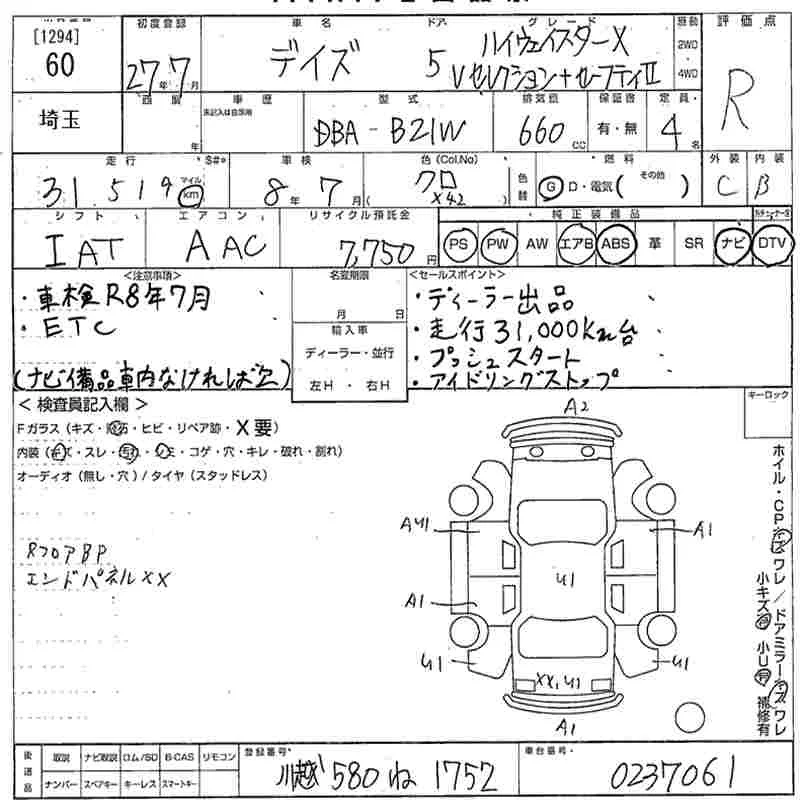 [1294]
60
初度登録
27年7月
車名
デイズ
ドア
5
グレード
ハイウェイスターX
Vセレクション+セーフティII
駆動
2WD
4WD
評価点
R
埼玉
年
車歴
未記入は自家用
型式
DBA-B21W
排気量
660 CC
保証書
有・無
定員
4名
走行
31,519 マイル km
S#*
車検
8年7月
色(Col,No)
クロ
( X42 )
色替
燃料
G D・電気( その他 )
外装
C
内装
B
シフト
IAT
エアコン
AAC
リサイクル預託金
7,750円
純正装備品
PS PW AW エアB ABS 革 SR ナビ DTV
<注意事項>
・車検R8年7月
・ETC
(ナビ備品車内なければ欠)
名変期限
月 日
輸入車
ディーラー・並行
左H ・ 右H
<セールスポイント>
・ディーラー出品
・走行31,000Km台
・プッシュスタート
・アイドリングストップ
<検査員記入欄>
Fガラス(キズ・飛石・ヒビ・リペア跡・X要)
内装(キズ・スレ・汚れ・シミ・コゲ・穴・キレ・破れ・割れ)
オーディオ(無し・穴)/タイヤ(スタッドレス)
RフロアBP
エンドパネルXX
キーロック
A2
AU1
A1
U1
A1
U1
U1
XX,U1
A1
ホイル・CPキズワレ/ドアミラーキズワレ
小キズ有 小U有 補修有
後送品
取説 ナビ取説 ロム/SD B-CAS リモコン
ナンバー スペアキー キーレス スマートキー
登録番号
川越 580 ね 1752
車台番号
0237061